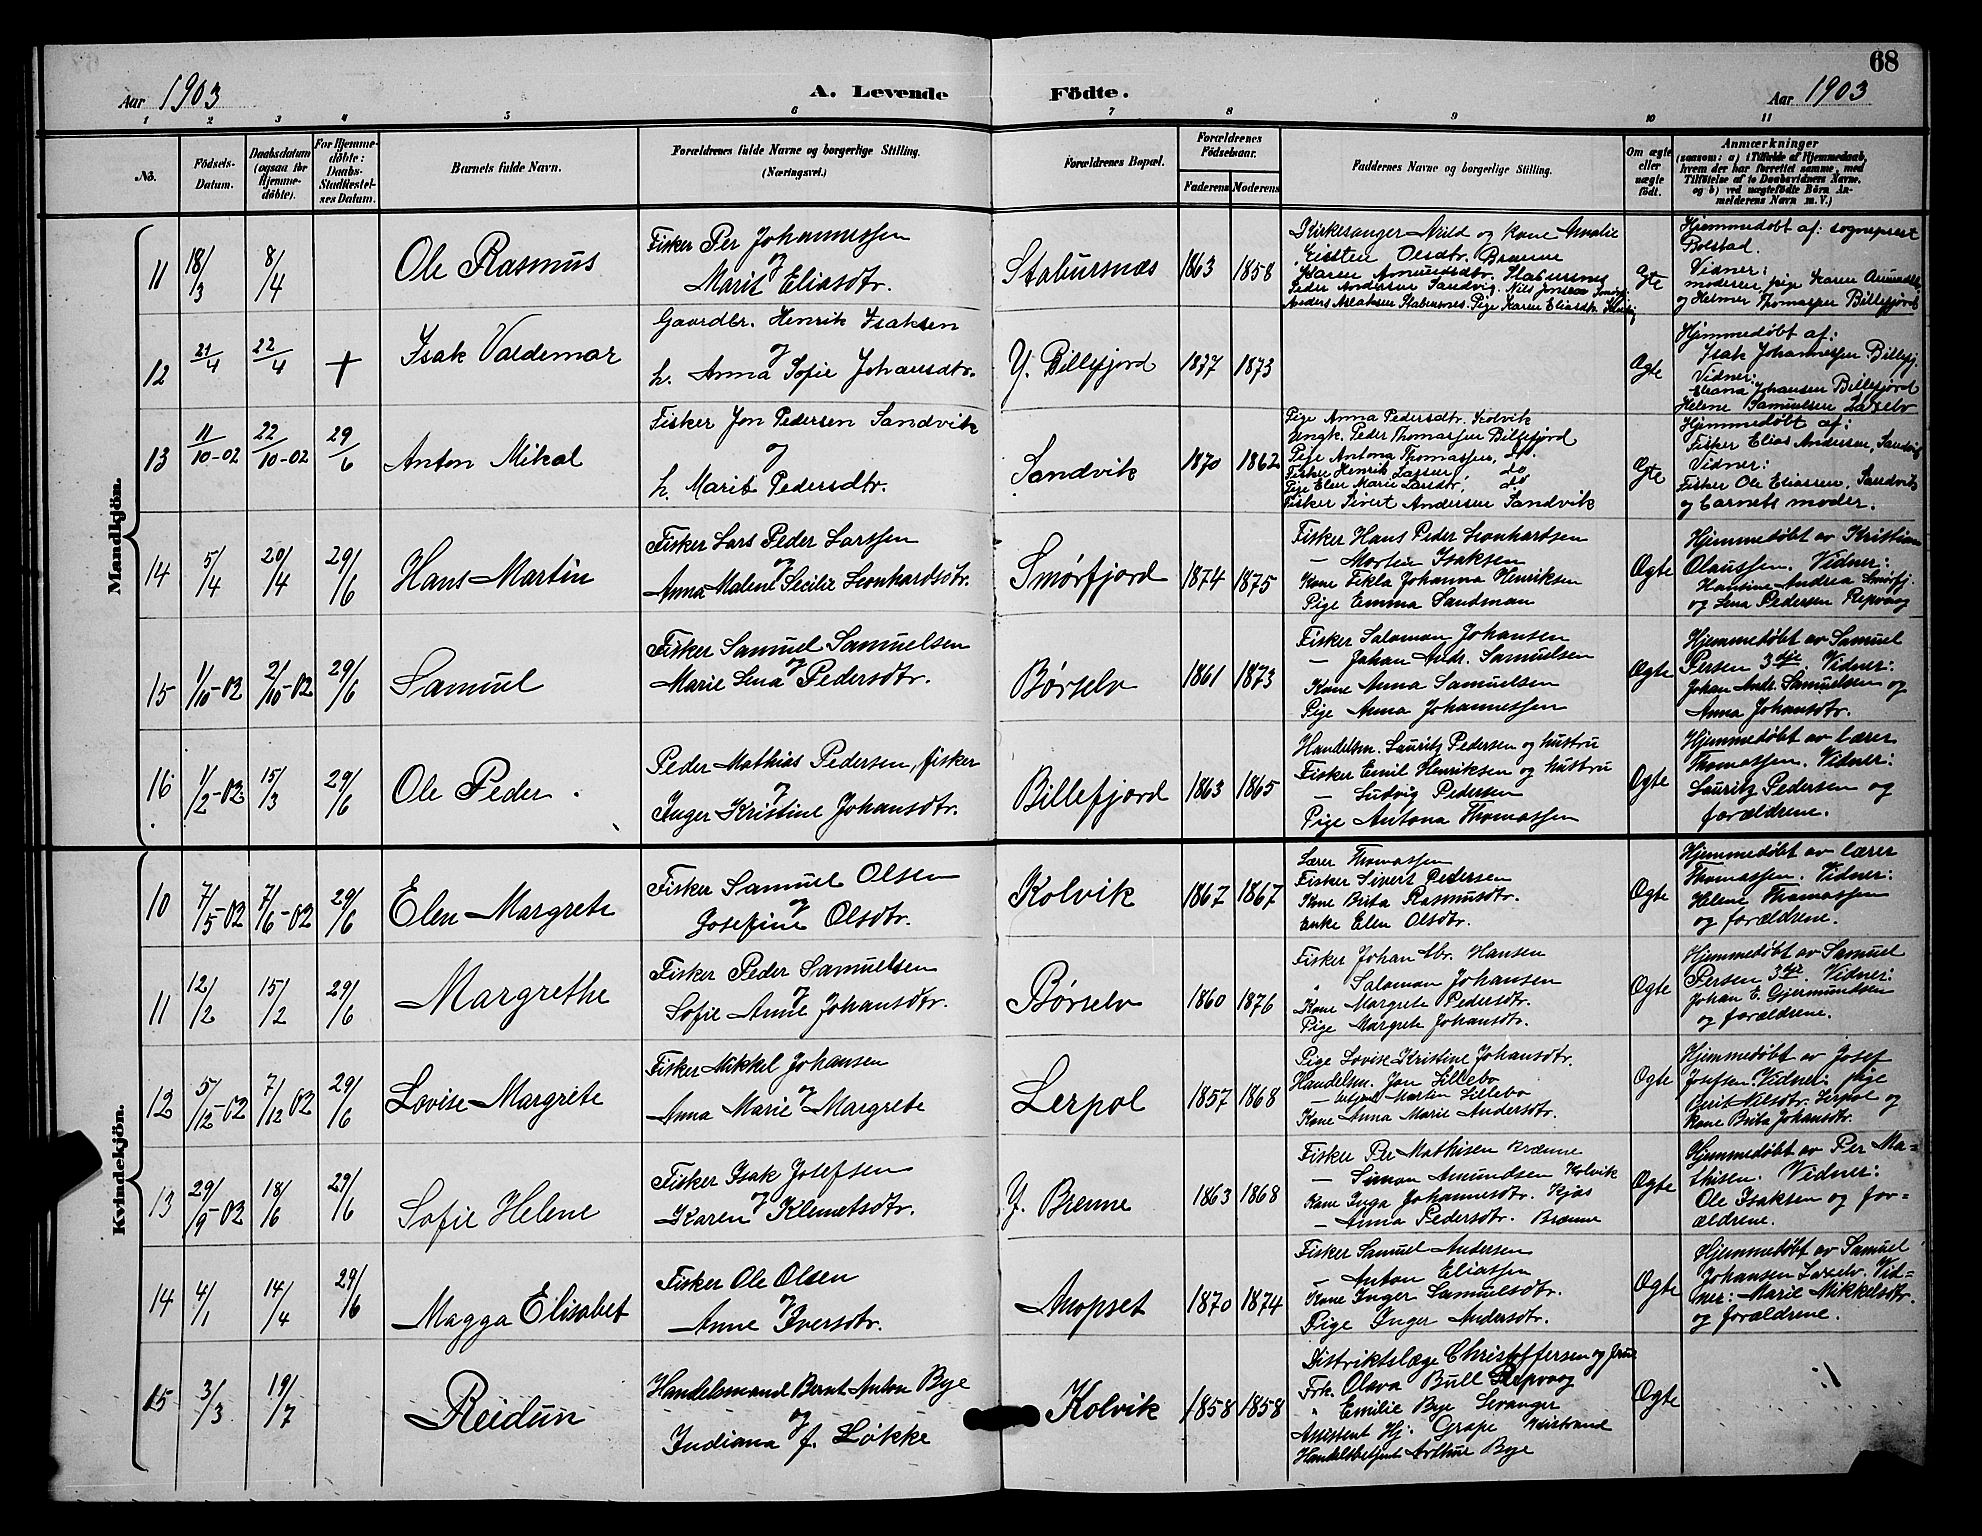 68
Aar 1903
A. Levende Födte.
Aar 1903
1 2 3 4 5 6 7 8 9 10 11
No.
Födsels-
Datum.
Daabsdatum
(ogsaa for
Hjemme-
döbte).
For Hjemme-
döbte:
Daabs-
Stadfæstel-
ses Datum.
Barnets fulde Navn.
Forældrenes fulde Navne og borgerlige Stilling.
(Næringsvei.)
Forældrenes Bopæl.
Forældrenes
Födselsaar.
Faderens Moderens
Faddernes Navne og borgerlige Stilling.
Om ægte
eller
uægte
født.
Anmærkninger
(saasom: a) i Tilfælde af Hjemmedaab,
hvem der har forrettet samme, med
Tilföielse af to Daabsvidners Navne,
og b) ved uægtefödte Börn An-
melderens Navn m. V.)
Mandkjön.
11
18/3
8/4
Ole Rasmus
Fisker Per Johannessen
og
Marit Eliasdtr.
Stabursnæs
1863
1858
Kirkesanger Mild og Kone Amalie
Kirsten Olsdtr. Brænne
Karen Amundsdtr. Stabursnes
Peder Andersen Sandvig. Nils Jonsen
Anders Aslaksen Stabursnes. Pige Karen Eliasdtr.
Ægte
Hjemmedøbt af: sogneprest
Bolstad.
Vidner:
moderen, pige Karen Amundsd.
og Helmer Thomassen Billefjord
12
21/4
22/4
+
Isak Valdemar
Gaardbr. Henrik Isaksen
og
h. Anna Sofie Johansdtr.
Y. Billefjord
1877
1873
Ægte
Hjemmedøbt af:
Isak Johannessen Billefj.
Vidner:
Johansen Billefjord
Helene Samuelsen Laxelv
13
11/10-02
22/10-02
29/6
Anton Mikal
Fisker Jon Pedersen Sandvik
og
h. Marit Pedersdtr.
Sandvik
1870
1862
Pige Anna Pedersdtr. Kolvik
Ungk. Peder Thomassen Billefjord
Pige Antona Thomassen, do.
Fisker Henrik Larsen do
Pige Elen Marie Larsdtr. do
Fisker Sivert Andersen Sandvik
Ægte
Hjemmedøbt af:
Fisker Elias Andersen, Sandvik
Vidner:
Fisker Ole Eliassen, Sandvik
og barnets moder.
14
5/4
20/4
29/6
Hans Martin
Fisker Lars Peder Larssen
og
Anna Malene Secilie Leonhardsdtr.
Smörfjord
1874
1875
Fisker Hans Peder Leonhardsen
— Martin Isaksen
Kone Tekla Johanna Henriksen
Pige Emma Sandman
Ægte
Hjemmedøbt av Kristian
Olaussen. Vidner:
Hansine Andrea Smørfj.
og Lena Pedersen Repvaag
15
1/10-02
2/10-02
29/6
Samuel
Fisker Samuel Samuelsen
og
Marie Lena Pedersdtr.
Børselv
1861
1873
Fisker Salaman Johansen
— Johan Andr. Samuelsen
Kone Anna Samuelsen
Pige Anna Johannessen
Ægte
Hjemmedøbt av Samuel
Persen 3dje. Vidner:
Johan Andr. Samuelsen og
Anna Johansdtr.
16
1/2-02
15/3
29/6
Ole Peder
Peder Mathias Pedersen, fisker
og
Inger Kristine Johansdtr.
Billefjord
1863
1865
Handelsm. Lauritz Pedersen og hustru
Fisker Emil Henriksen og hustru
— Ludvig Pedersen
Pige Antona Thomassen
Ægte
Hjemmedøbt av lærer
Thomassen. Vidner:
Lauritz Pedersen og
forældrene.
Kvindekjön.
10
7/5-02
7/6-02
29/6
Elen Margrete
Fisker Samuel Olsen
og
Josefine Olsdtr.
Kolvik
1867
1867
Lærer Thomassen
Fisker Sivert Pedersen
Kone Brita Rasmusdtr.
Enke Elen Olsdtr.
Ægte
Hjemmedøbt av lærer
Thomassen. Vidner:
Helene Thomassen
og forældrene.
11
12/2
15/2
29/6
Margrethe
Fisker Peder Samuelsen
og
Sofie Anne Johansdtr.
Børselv
1860
1876
Fisker Johan Abr. Hansen
" Salaman Johansen
Kone Margrete Pedersdtr.
Pige Margrete Johansdtr.
Ægte
Hjemmedøbt av Samuel
Persen 3dje. Vidner:
Johan E. Gjermundsen
og forældrene.
12
5/12-02
7/12 02
29/6
Lovise Margrete
Fisker Mikkel Johansen
og
Anna Marie Margrete
Lerpol
1857
1868
Pige Lovise Kristine Johansdtr.
Handelsm. Jon Lillebo
— betjent Martin Lillebo
Kone Anna Marie Andersdtr.
Ægte
Hjemmedøbt av Josef
Josefsen. Vidner: pige
Berit Nilsdtr. Lerpol og
kone Brita Johansdtr.
13
29/9-02
18/6
29/6
Sofie Helene
Fisker Isak Josefsen
og
Karen Klemetsdtr.
Y. Brenne
1863
1868
Fisker Per Mathisen Brænne
— Simon Amundsen Kolvik
Kone Inga Johannesdtr. Kjæs
— Anna Pedersdtr. Brænne
Ægte
Hjemmedøbt av Per Ma-
thisen. Vidner:
Ole Isaksen og for-
ældrene.
14
4/1
14/4
29/6
Magga Elisabet
Fisker Ole Olsen
og
Anne Iversdtr.
Anopset
1870
1874
Fisker Samuel Andersen
Anton Eliassen
Kone Inger Samuelsdtr.
Pige Inger Andersdtr.
Ægte
Hjemmedøbt av Samuel
Johansen Laxelv. Vid-
ner: Marie Mikkelsdtr.
og forældrene.
15
3/3
19/7
Reidun
Handelsmand Bernt Anton Bye
og
Indiana f. Løkke
Kolvik
1858
1858
Distriktslæge Christoffersen og frue
Frk. Olava Bull Repvaag
" Emilie Bye Levanger
Assistent Hj. Grape Kistrand
Handelsbetjent Arthur Bye
Ægte